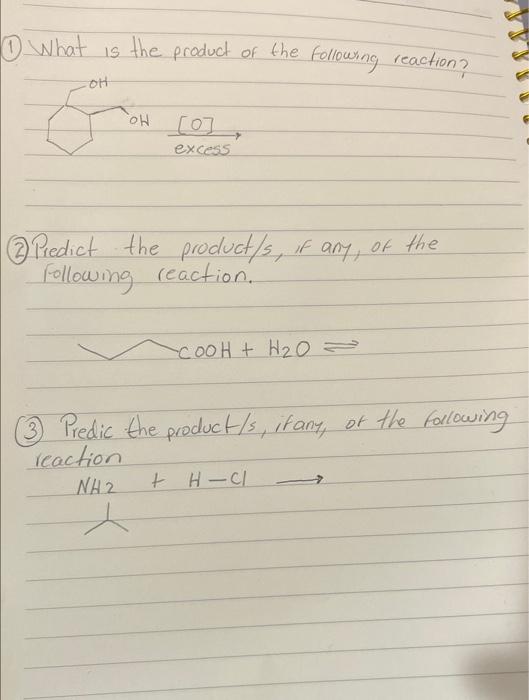 ① What is the product of the following reaction?
OH
OH [O]
excess
② Predict the product/s, if any, of the
following reaction.
COOH + H2O ⇌
③ Predic the product/s, if any, of the following
reaction
NH2 + H-Cl →